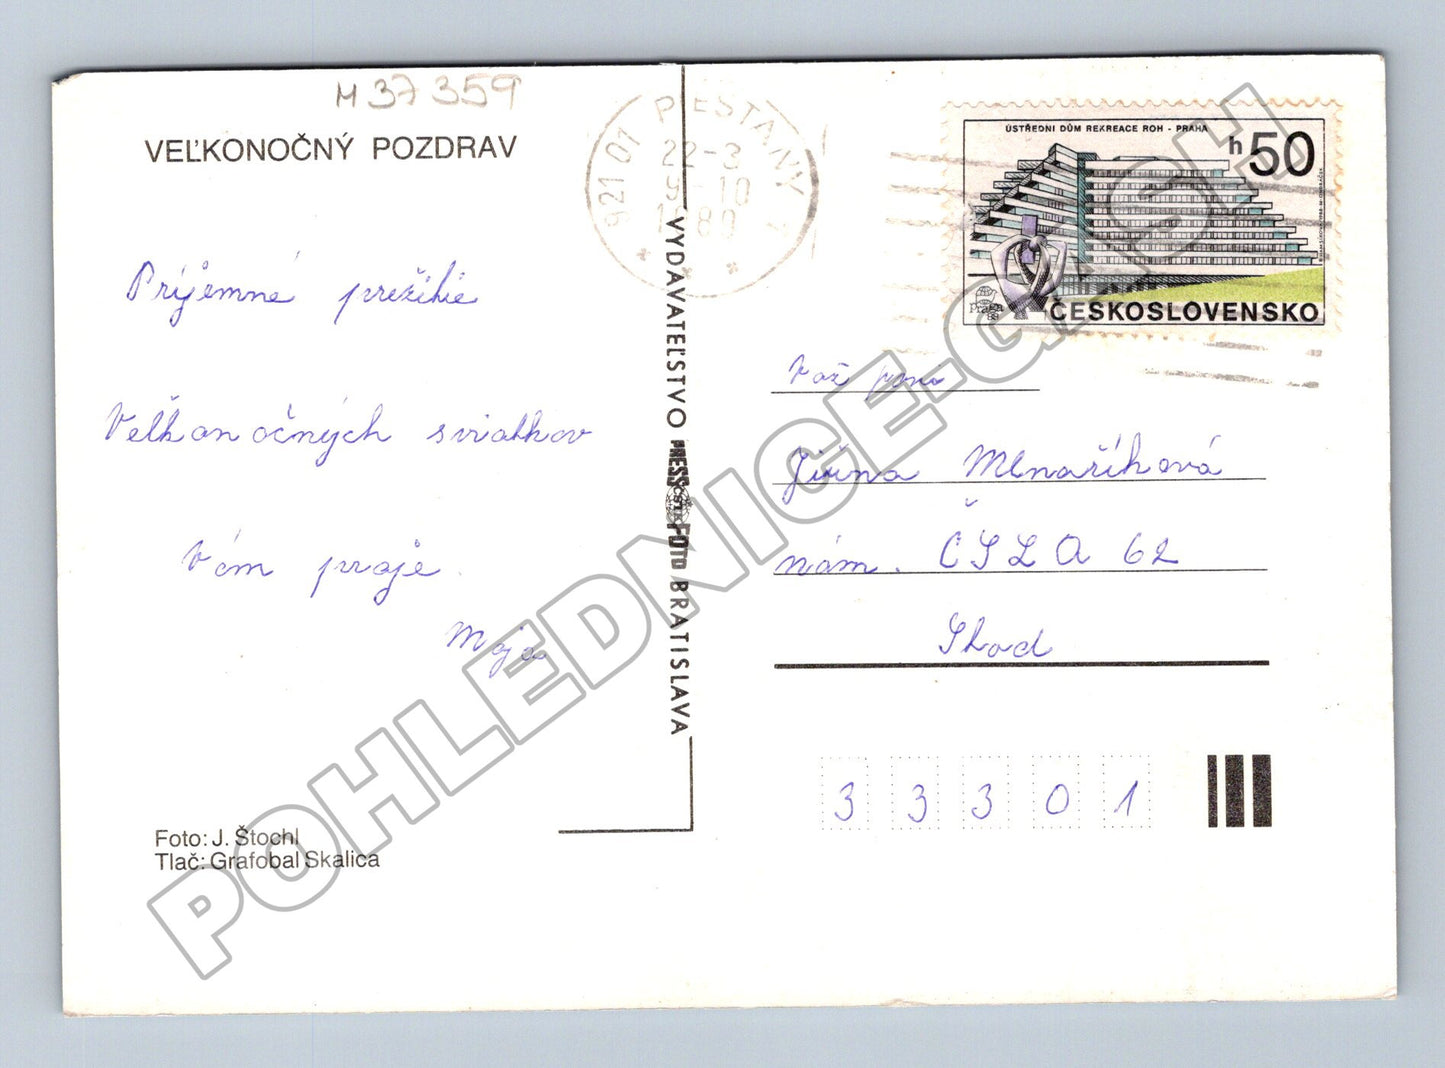 M 37 359
VEĽKONOČNÝ POZDRAV
Príjemné prežitie
Veľkonočných sviatkov
Vám praje
Maja
Foto: J. Štochl
Tlač: Grafobal Skalica
VYDAVATEĽSTVO PRESSFOTO BRATISLAVA
ČSTK
921 01 PIEŠŤANY 1
22-3
10
ÚSTŘEDNÍ DŮM REKREACE ROH - PRAHA
h 50
Praga 88
ČESKOSLOVENSKO
Váž pani
Jiřina Mlnaříková
nám. ČSLA 62
Stod
3 3 3 0 1
POHLEDNICE-GASH